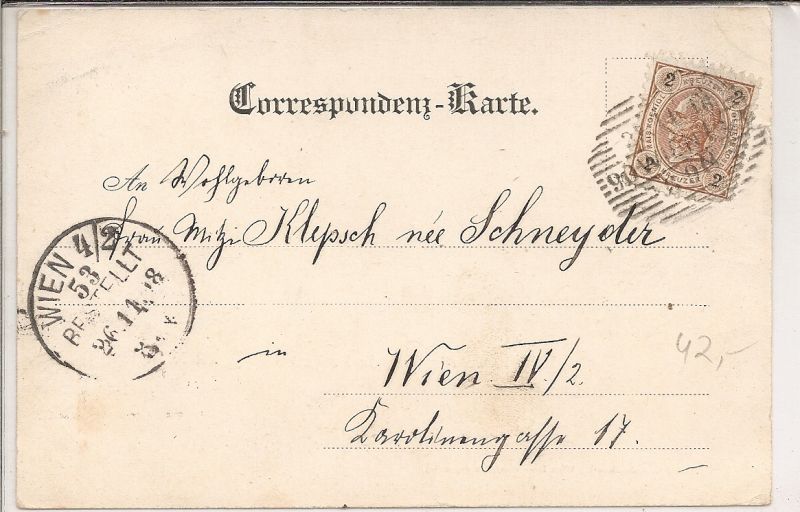 Correspondenz-Karte.
An Wohlgeboren
Frau Mitzi Klepsch née Schneyder
in
Wien IV/2.
Karolinengasse 17.
42,-
WIEN 4/2
53
BESTELLT
26.11.98
2 2
KREUZER
2 2